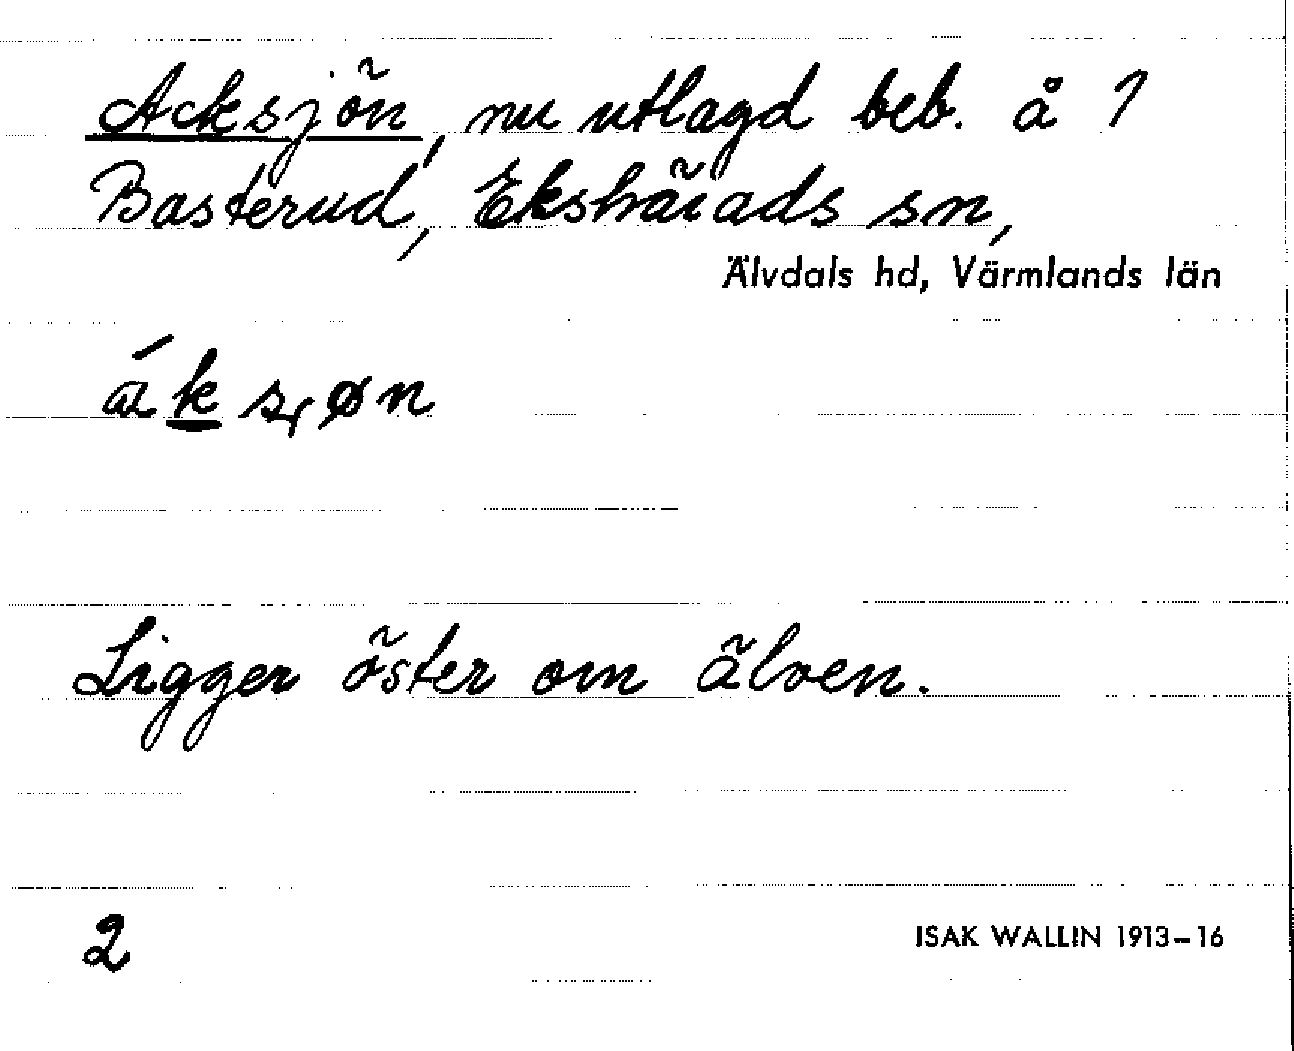 Acksjön, nu utlagd beb. å 1
Basterud, Ekshärads sn,
Älvdals hd, Värmlands län
áksjøn
Ligger öster om älven.
2
ISAK WALLIN 1913-16